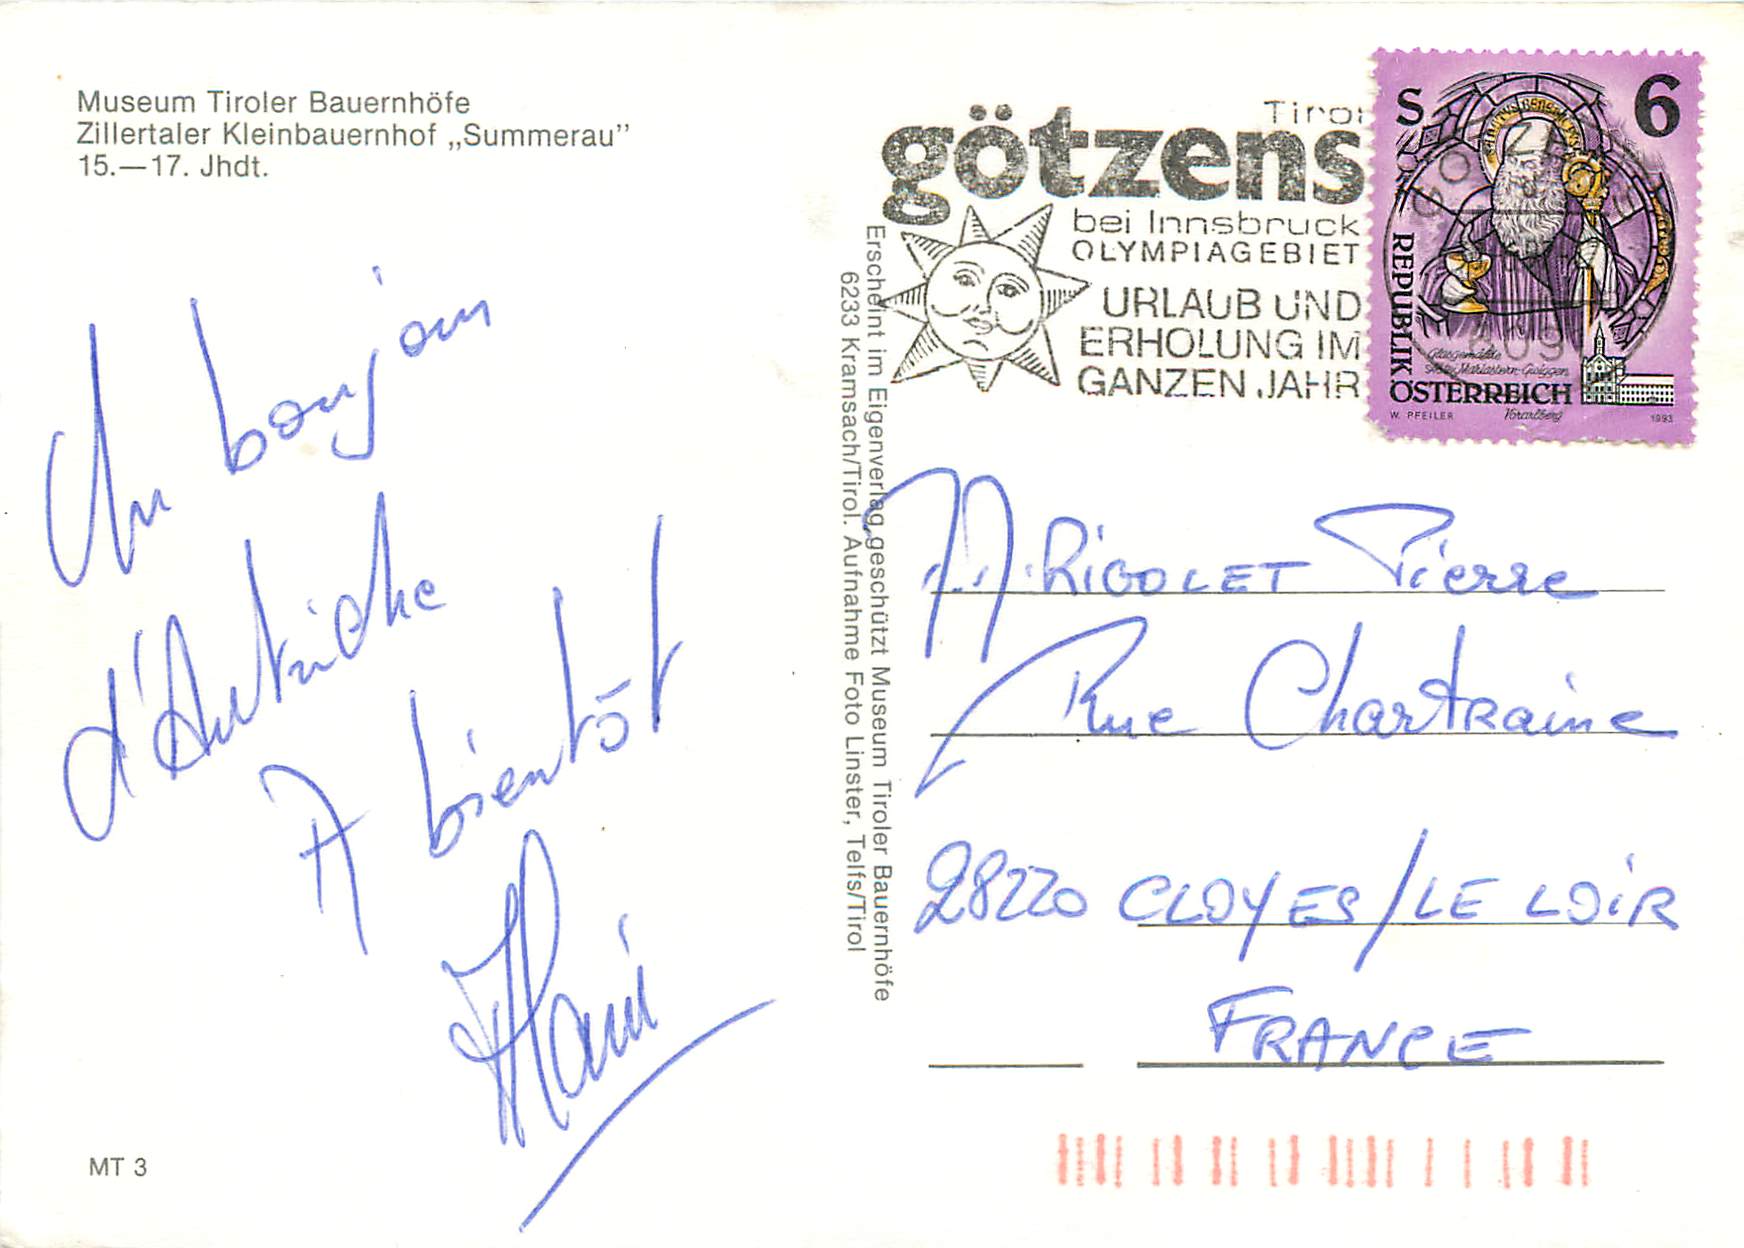 Museum Tiroler Bauernhöfe
Zillertaler Kleinbauernhof „Summerau”
15.—17. Jhdt.
Un bonjour
d'Autriche
A bientôt
Tirol
götzens
bei Innsbruck
OLYMPIAGEBIET
URLAUB UND
ERHOLUNG IM
GANZEN JAHR
S 6
REPUBLIK
ÖSTERREICH
Glasgemälde
Abtei Mariastern-Gwiggen
Vorarlberg
W. PFEILER
1993
Erscheint im Eigenverlag, geschützt Museum Tiroler Bauernhöfe
6233 Kramsach/Tirol. Aufnahme Foto Linster, Telfs/Tirol
M. RIGOLET Pierre
Rue Chartraine
28220 CLOYES/LE LOIR
FRANCE
MT 3